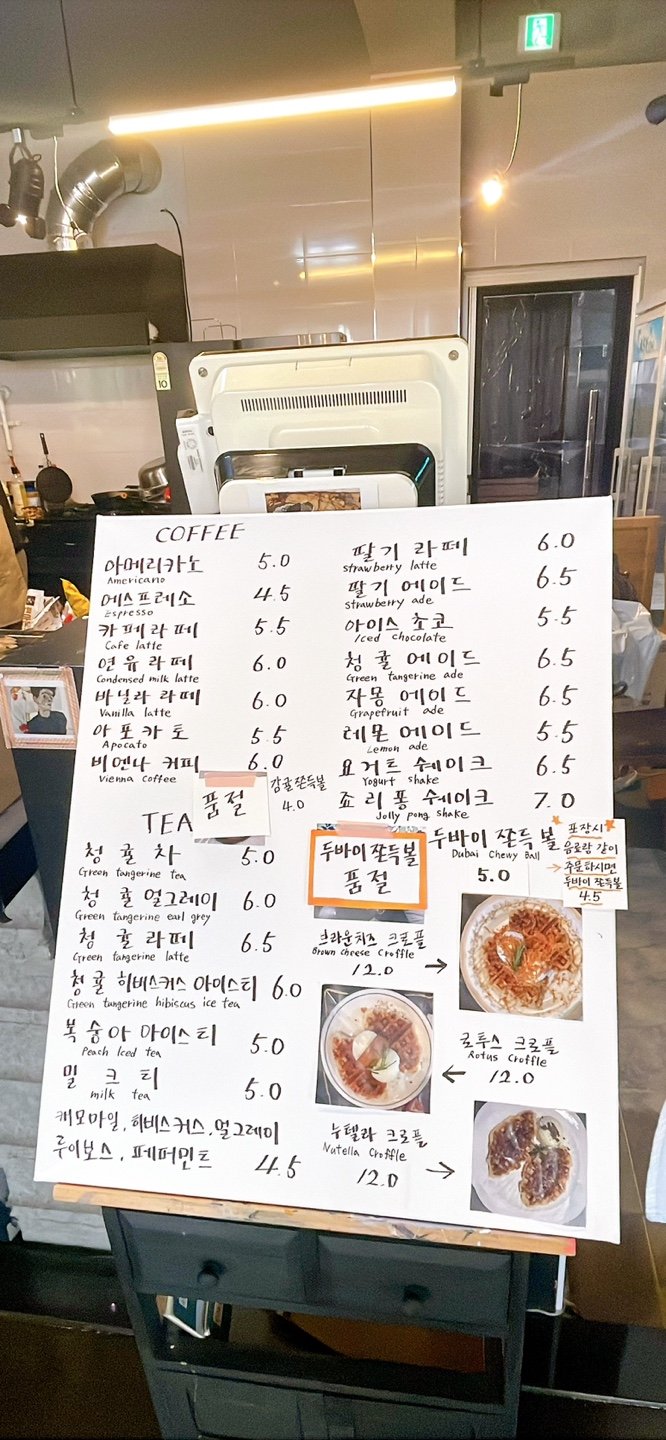 COFFEE
아메리카노 5.0
Americano
에스프레소 4.5
Espresso
카페라떼 5.5
Cafe latte
연유라떼 6.0
Condensed milk latte
바닐라 라떼 6.0
Vanilla latte
아포카토 5.5
Apocato
비엔나 커피 6.0
Vienna coffee
품절
감귤쫀득볼
4.0
TEA
청귤차 5.0
Green tangerine tea
청귤 얼그레이 6.0
Green tangerine earl grey
청귤 라떼 6.5
Green tangerine latte
청귤 히비스커스 아이스티 6.0
Green tangerine hibiscus ice tea
복숭아 아이스티 5.0
Peach Iced tea
밀크티 5.0
milk tea
캐모마일, 히비스커스, 얼그레이
루이보스, 페퍼민트 4.5
딸기 라떼 6.0
strawberry latte
딸기 에이드 6.5
strawberry ade
아이스 초코 5.5
Iced chocolate
청귤 에이드 6.5
Green tangerine ade
자몽 에이드 6.5
Grapefruit ade
레몬 에이드 5.5
Lemon ade
요거트 쉐이크 6.5
Yogurt shake
죠리퐁 쉐이크 7.0
Jolly pong shake
두바이 쫀득볼
품절
두바이 쫀득 볼
Dubai Chewy Ball
5.0
포장시
음료랑 같이
주문하시면
두바이 쫀득볼
4.5
브라운치즈 크로플
Brown cheese Croffle
12.0
로투스 크로플
Rotus Croffle
12.0
뉴텔라 크로플
Nutella Croffle
12.0
10